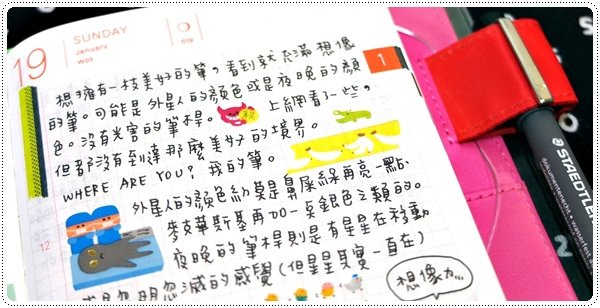 19
SUNDAY
January
W03
019
1
想擁有一枝美好的筆，看到就充滿想像
的筆。可能是外星人的顏色或是夜晚的顏
色。沒有光害的筆桿。上網看了一些，
但都沒有到達那麼美好的境界。
WHERE ARE YOU? 我的筆。
外星人的顏色約莫是鼻屎綠再亮一點
麥克華斯基再00一炙銀色之類的。
12
夜晚的筆桿則是有星星在移動
或是忽明忽滅的感覺(但星星真實一直在)
想像力...
STAEDTLER
dokumentenecht • wasserfest